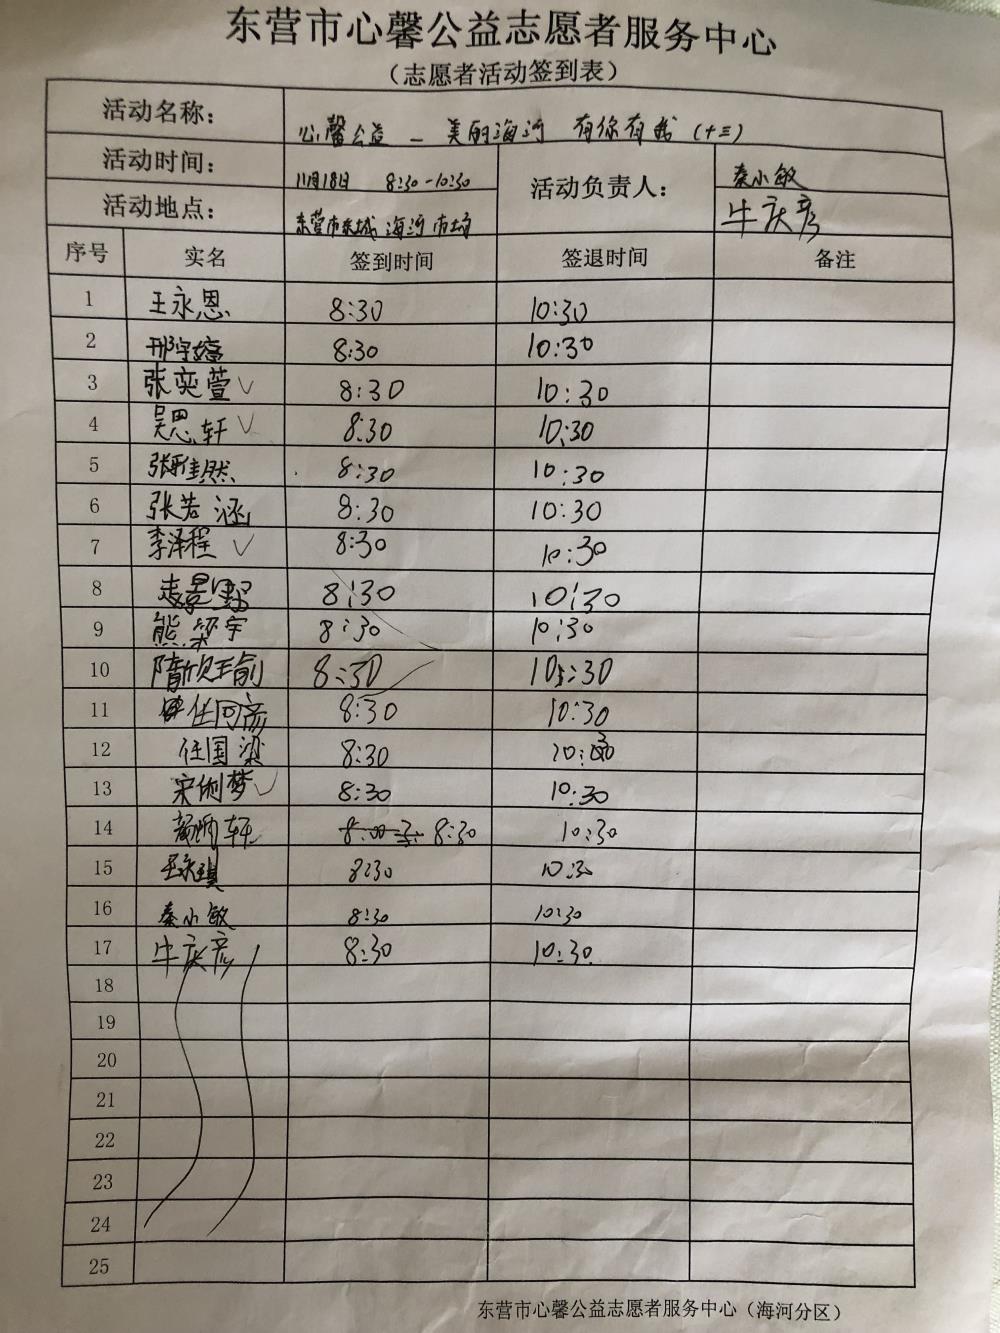 东营市心馨公益志愿者服务中心
（志愿者活动签到表）
活动名称： 心馨公益 — 美的海河 有你有我（十三）
活动时间： 11月18日 8:30-10:30 活动负责人： 秦小敏
活动地点： 东营市东城 海河市场 牛庆彦
序号 实名 签到时间 签退时间 备注
1 王永恩 8:30 10:30
2 8:30 10:30
3 张奕萱 ✓ 8:30 10:30
4 吴思轩 ✓ 8:30 10:30
5 8:30 10:30
6 张若涵 8:30 10:30
7 李泽程 ✓ 8:30 10:30
8 8:30 10:30
9 熊梁宇 8:30 10:30
10 隋欣瑜 8:30 10:30
11 8:30 10:30
12 任国梁 8:30
13 宋俐梦 ✓ 8:30 10:30
14 8:30 10:30
15 8:30 10:30
16 秦小敏 8:30 10:30
17 牛庆彦 8:30 10:30
18
19
20
21
22
23
24
25
东营市心馨公益志愿者服务中心（海河分区）